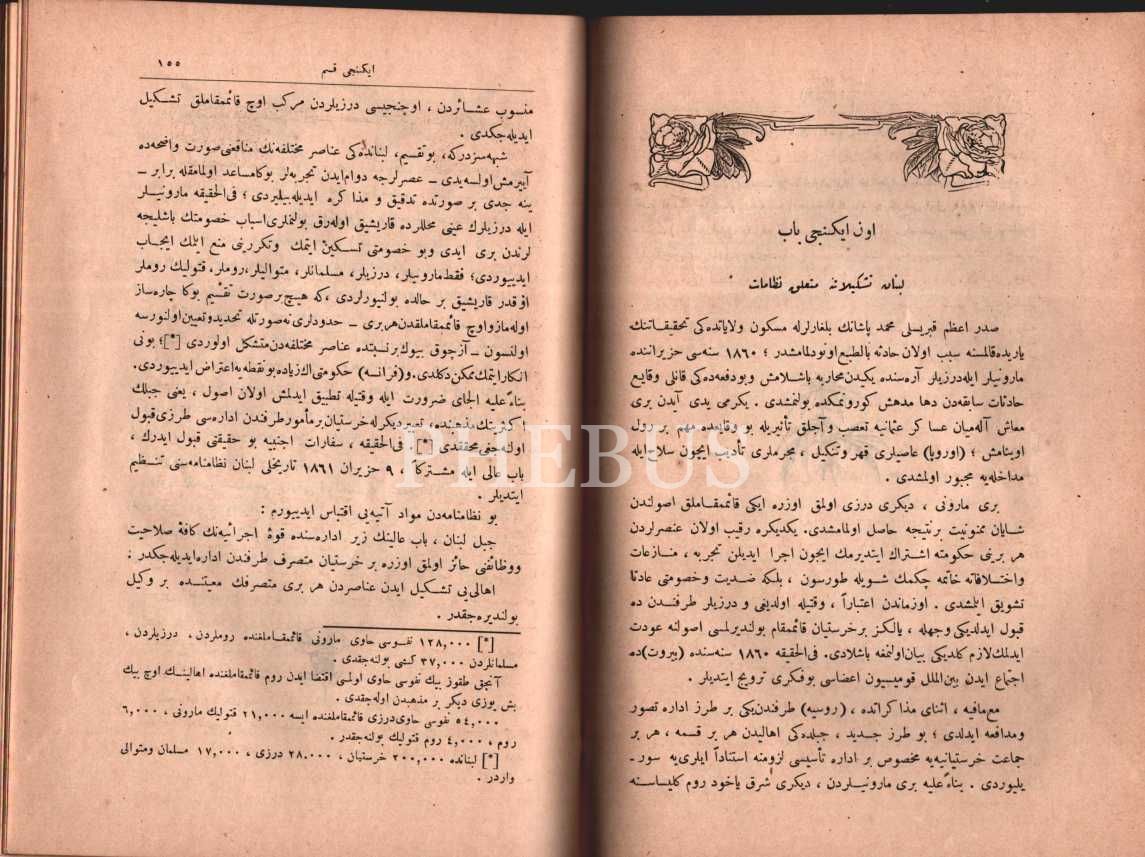 اون ایكنجی باب
لبنان تشكیلاتنه متعلق نظامات
صدر اعظم قبریسلی محمد پاشانك بلغارلرله مسكون ولایاتده‌كی تحقیقاتنك
یاریده قالمسنه سبب اولان حادثه بالطبع اونودلمامشدر ؛ ١٨٦٠ سنه‌سی حزیراننده
مارونیلر ایله درزیلر آره‌سنده یكیدن محاربه باشلامش وبودفعه‌ده‌كی قانلی وقایع
حادثات سابقه‌دن دها مدهش كورونمكده بولنمشدی . یكرمی یدی آیدن بری
معاش آله‌میان عساكر عثمانیه تعصب وآجلق تأثیریله بو وقایعده مهم بر رول
اوینامش ؛ (اوروپا) عاصیلری قهر وتنكیل ، مجرملری تأدیب ایچون سلاح ایله
مداخله‌یه مجبور اولمشدی .
بری مارونی ، دیكری درزی اولمق اوزره ایكی قائممقاملق اصولندن
شایان ممنونیت برنتیجه حاصل اولمامشدی . یكدیكره رقیب اولان عنصرلردن
هر برینی حكومته اشتراك ایتدیرمك ایچون اجرا ایدیلن تجربه ، منازعات
واختلافاته خاتمه چكمك شویله طورسون ، بلكه ضدیت وخصومتی عادتا
تشویق ایتمشدی . اوزماندن اعتباراً ، وقتیله اولدیغی و درزیلر طرفندن ده
قبول ایدلدیكی وجهله ، یالكز برخرستیان قائممقام بولندیرلمسی اصولنه عودت
ایدلمك لازم كلدیكی بیان اولنمغه باشلادی. فی الحقیقه ١٨٦٠ سنه‌سنده (بیروت)ده
اجتماع ایدن بین الملل قومیسیون اعضاسی بوفكری ترویج ایتدیلر .
مع مافیه ، اثنای مذاكراتده ، (روسیه) طرفندن یكی بر طرز اداره تصور
ومدافعه ایدلدی ؛ بو طرز جدید ، جبلده‌كی اهالیدن هر بر قسمه ، هر بر
جماعت خرستیانیه‌یه مخصوص بر اداره تأسیسی لزومنه استناداً ایلری‌یه سور-
یلیوردی . بناءً علیه بری مارونیلردن ، دیكری شرق یاخود روم كلیساسنه
ایكنجی قسم
١٥٥
منسوب عشائردن ، اوچنجیسی درزیلردن مركب اوچ قائممقاملق تشكیل
ایدیله‌جكدی .
شبهه‌سزدركه، بوتقسیم، لبنانده‌كی عناصر مختلفه‌نك منافعنی صورت واضحه‌ده
آییرمش اولسه‌یدی ــ عصرلرجه دوام ایدن تجربه‌لر بوكا مساعد اولمامقله برابر ــ
ینه جدی بر صورتده تدقیق و مذاكره ایدیله بیلیردی ؛ فی الحقیقه مارونیلر
ایله درزیلرك عینی محللرده قاریشیق اوله‌رق بولنملری اسباب خصومتك باشلیجه
لرندن بری ایدی وبو خصومتی تسكین ایتمك وتكررینی منع ایتمك ایجاب
ایدییوردی؛ فقط مارونیلر، درزیلر، مسلمانلر، متوالیلر، روملر، قتولیك روملر
اوقدر قاریشیق بر حالده بولنیورلردی ، كه هیچ برصورت تقسیم بوكا چاره‌ساز
اوله‌مازواوچ قائممقاملقدن هربری ــ حدودلری نه صورتله تحدید وتعیین اولنورسه
اولنسون ــ آزچوق بیوك برنسبتده عناصر مختلفه‌دن متشكل اولوردی [*]؛ بونی
انكار ایتمك ممكن دكلدی. و(فرانسه) حكومتی اك زیاده بونقطه‌یه اعتراض ایدییوردی.
بناءً علیه الجای ضرورت ایله وقتیله تطبیق ایدلمش اولان اصول ، یعنی جبلك
اكثریتك مذهبنده، تعبیر دیكرله خرستیان برمأمور طرفندن اداره‌سی طرزی قبول
اوله‌جغی محققدی [*]. فی الحقیقه ، سفارات اجنبیه بو حقیقتی قبول ایدرك ،
باب عالی ایله مشتركاً ، ٩ حزیران ١٨٦١ تاریخلی لبنان نظامنامه‌سنی تنظیم
ایتدیلر .
بو نظامنامه‌دن مواد آتیه‌یی اقتباس ایدییورم :
جبل لبنان ، باب عالینك زیر اداره‌سنده قوهٔ اجرائیه‌نك كافهٔ صلاحیت
ووظائفنی حائز اولمق اوزره بر خرستیان متصرف طرفندن اداره ایدیله‌جكدر :
اهالی‌یی تشكیل ایدن عناصردن هر بری متصرفك معیتنده بر وكیل
بولندیره‌جقدر .
[*] ١٢٨,٠٠٠ نفوسی حاوی مارونی قائممقاملغنده روملردن، درزیلردن ،
مسلمانلردن ٣٧,٠٠٠ كیشی بولنه‌جقدی .
آنجق طقوز بیك نفوسی حاوی اولمسی اقتضا ایدن روم قائممقاملغنده اهالینك اوچ بیك
بش یوزی دیكر بر مذهبدن اوله‌جقدی .
٥٤,٠٠٠ نفوسی حاوی درزی قائممقاملغنده ایسه ٢١,٠٠٠ قتولیك مارونی ، ٦,٠٠٠
روم ، ٤,٠٠٠ روم قتولیك بولنه‌جقدر .
[*] لبنانده ٢٠٠,٠٠٠ خرستیان ، ٢٨.٠٠٠ درزی ، ١٧,٠٠٠ مسلمان ومتوالی
واردر .
PHEBUS